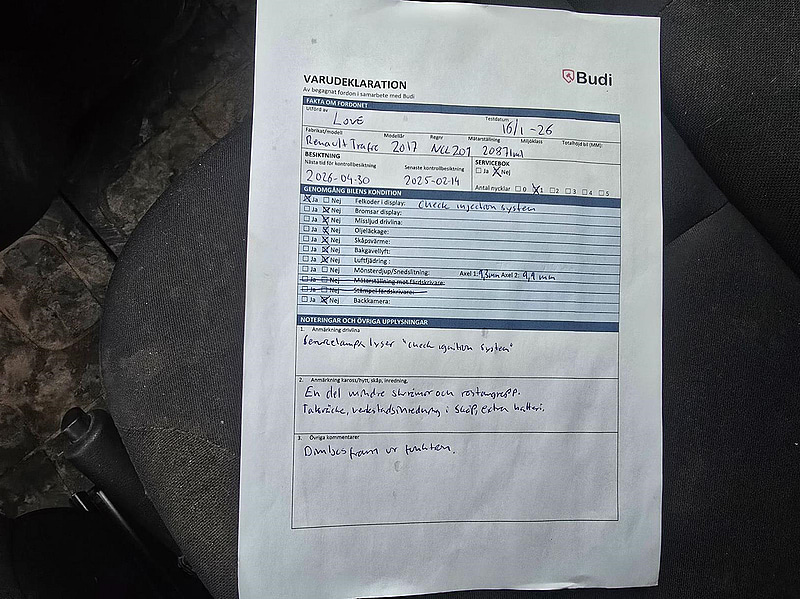 VARUDEKLARATION
Av begagnat fordon i samarbete med Budi
Budi
FAKTA OM FORDONET
Utförd av
Testdatum
Love
16/1 -26
Fabrikat/modell
Modellår
Regnr
Mätarställning
Miljöklass
Totalhöjd bil (MM):
Renault Trafic 2017
BESIKTNING
Nästa tid för kontrollbesiktning
Senaste kontrollbesiktning
2026-04-30
2025-02-14
SERVICEBOX
Ja Nej
Antal nycklar 0 1 2 3 4 5
GENOMGÅNG BILENS KONDITION
Ja Nej Felkoder i display: check injection system
Ja Nej Bromsar display:
Ja Nej Missljud drivlina:
Ja Nej Oljeläckage:
Ja Nej Skåpsvärme:
Ja Nej Bakgavellyft:
Ja Nej Luftfjädring:
Ja Nej Mönsterdjup/Snedslitning: Axel 1: 9,3mm Axel 2: 9,9 mm
Ja Nej Mätarställning mot färdskrivare:
Ja Nej Stämpel färdskrivare:
Ja Nej Backkamera:
NOTERINGAR OCH ÖVRIGA UPPLYSNINGAR
1. Anmärkning drivlina
lyser "check ignition system"
2. Anmärkning kaross/hytt, skåp, inredning.
En del mindre skråmor och rostangrepp.
Takräcke, verkstadsinredning i skåp, extra batteri.
3. Övriga kommentarer
Dimljus fram ur funktion.